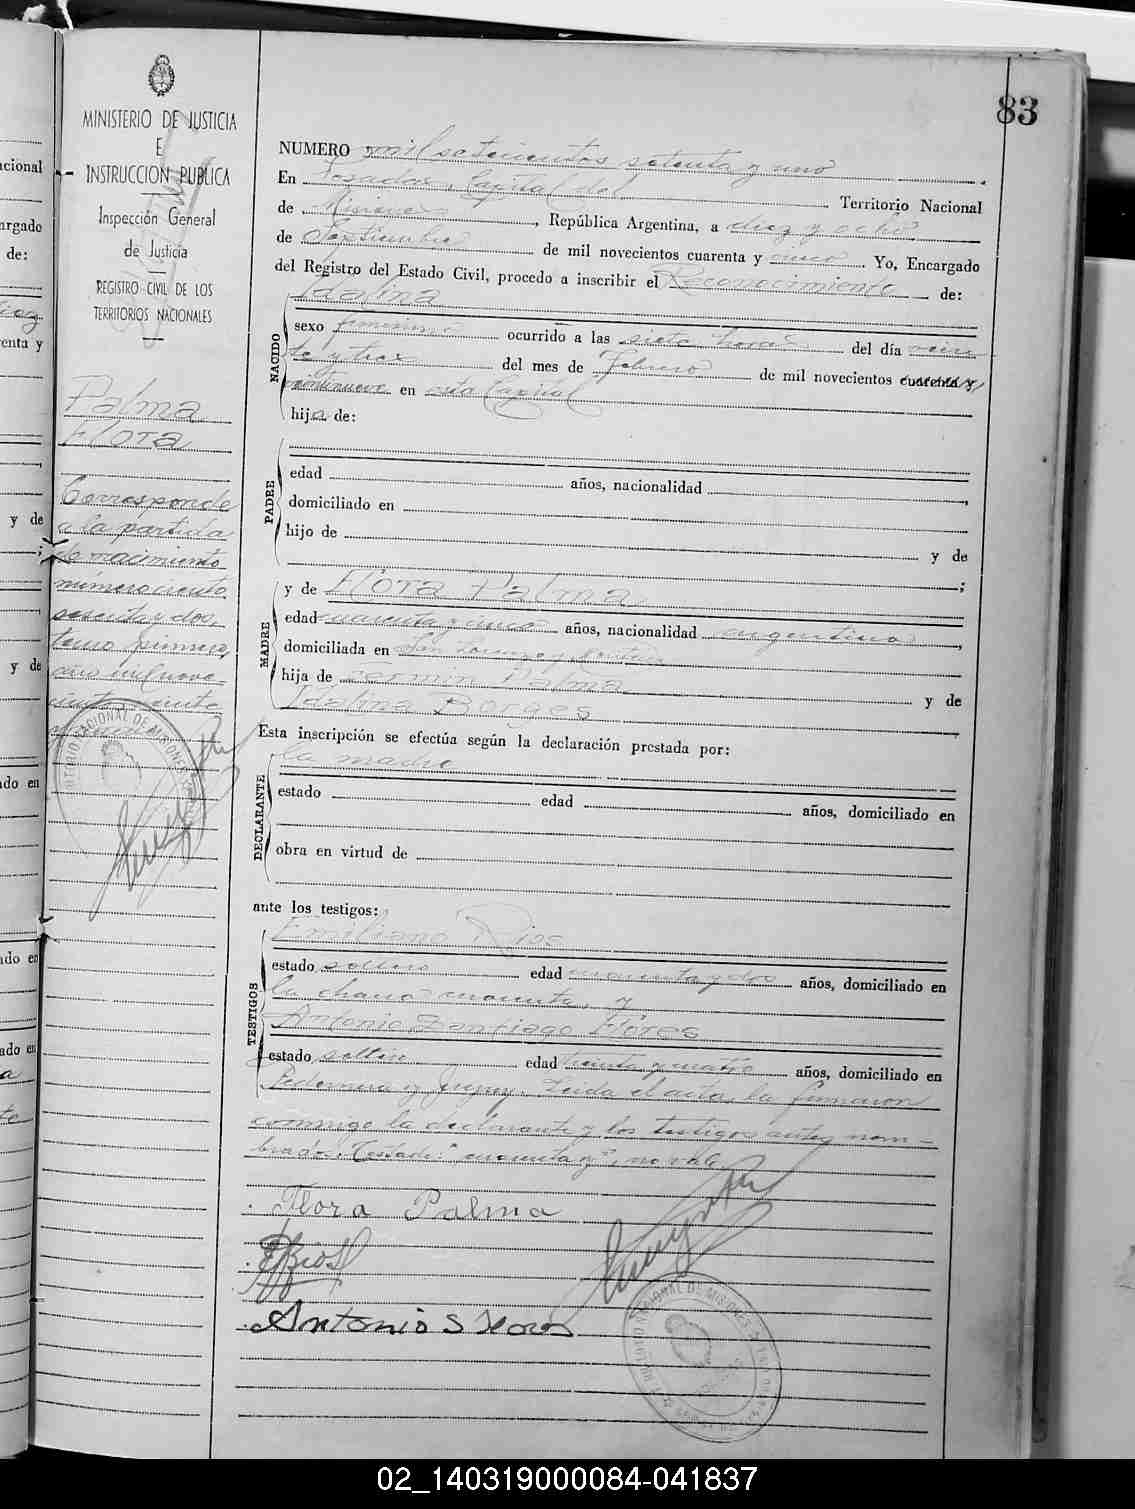 83
MINISTERIO DE JUSTICIA
E
INSTRUCCION PUBLICA
Inspección General
de Justicia
REGISTRO CIVIL DE LOS
TERRITORIOS NACIONALES
Palma
Flora
Corresponde
a la partida
de nacimiento
numero ciento
sesenta y dos,
tomo primero,
año mil nove-
NUMERO mil setecientos setenta y uno
En Posadas, Capital del Territorio Nacional
de Misiones, República Argentina, a diez y ocho
de Septiembre de mil novecientos cuarenta y cinco Yo, Encargado
del Registro del Estado Civil, procedo a inscribir el Reconocimiento de:
Idalina
NACIDO
sexo femenino ocurrido a las siete horas del día vein
te y tres del mes de Febrero de mil novecientos cuarenta y
veintinueve en esta Capital
hija de:
PADRE
edad años, nacionalidad ,
domiciliado en
hijo de y de
;
MADRE
y de Flora Palma
edad cuarenta y cinco años, nacionalidad argentina,
domiciliada en San Lorenzo y
hija de Fermin Palma y de
Idalina Borges ,
Esta inscripción se efectúa según la declaración prestada por:
la madre
DECLARANTE
estado edad años, domiciliado en
obra en virtud de
ante los testigos:
TESTIGOS
Emiliano Rios
estado soltero edad cuarenta y dos años, domiciliado en
la chacra cuarenta, y
Antonio Santiago Flores
estado soltero edad treinta y cuatro años, domiciliado en
Pedernera y Jujuy. Leida el acta, la firmaron
conmigo la declarante y los testigos antes nom-
brados. Testado: "cuarenta y", no vale.
Flora Palma
E Rios
Antonio S Flores
02_140319000084-041837